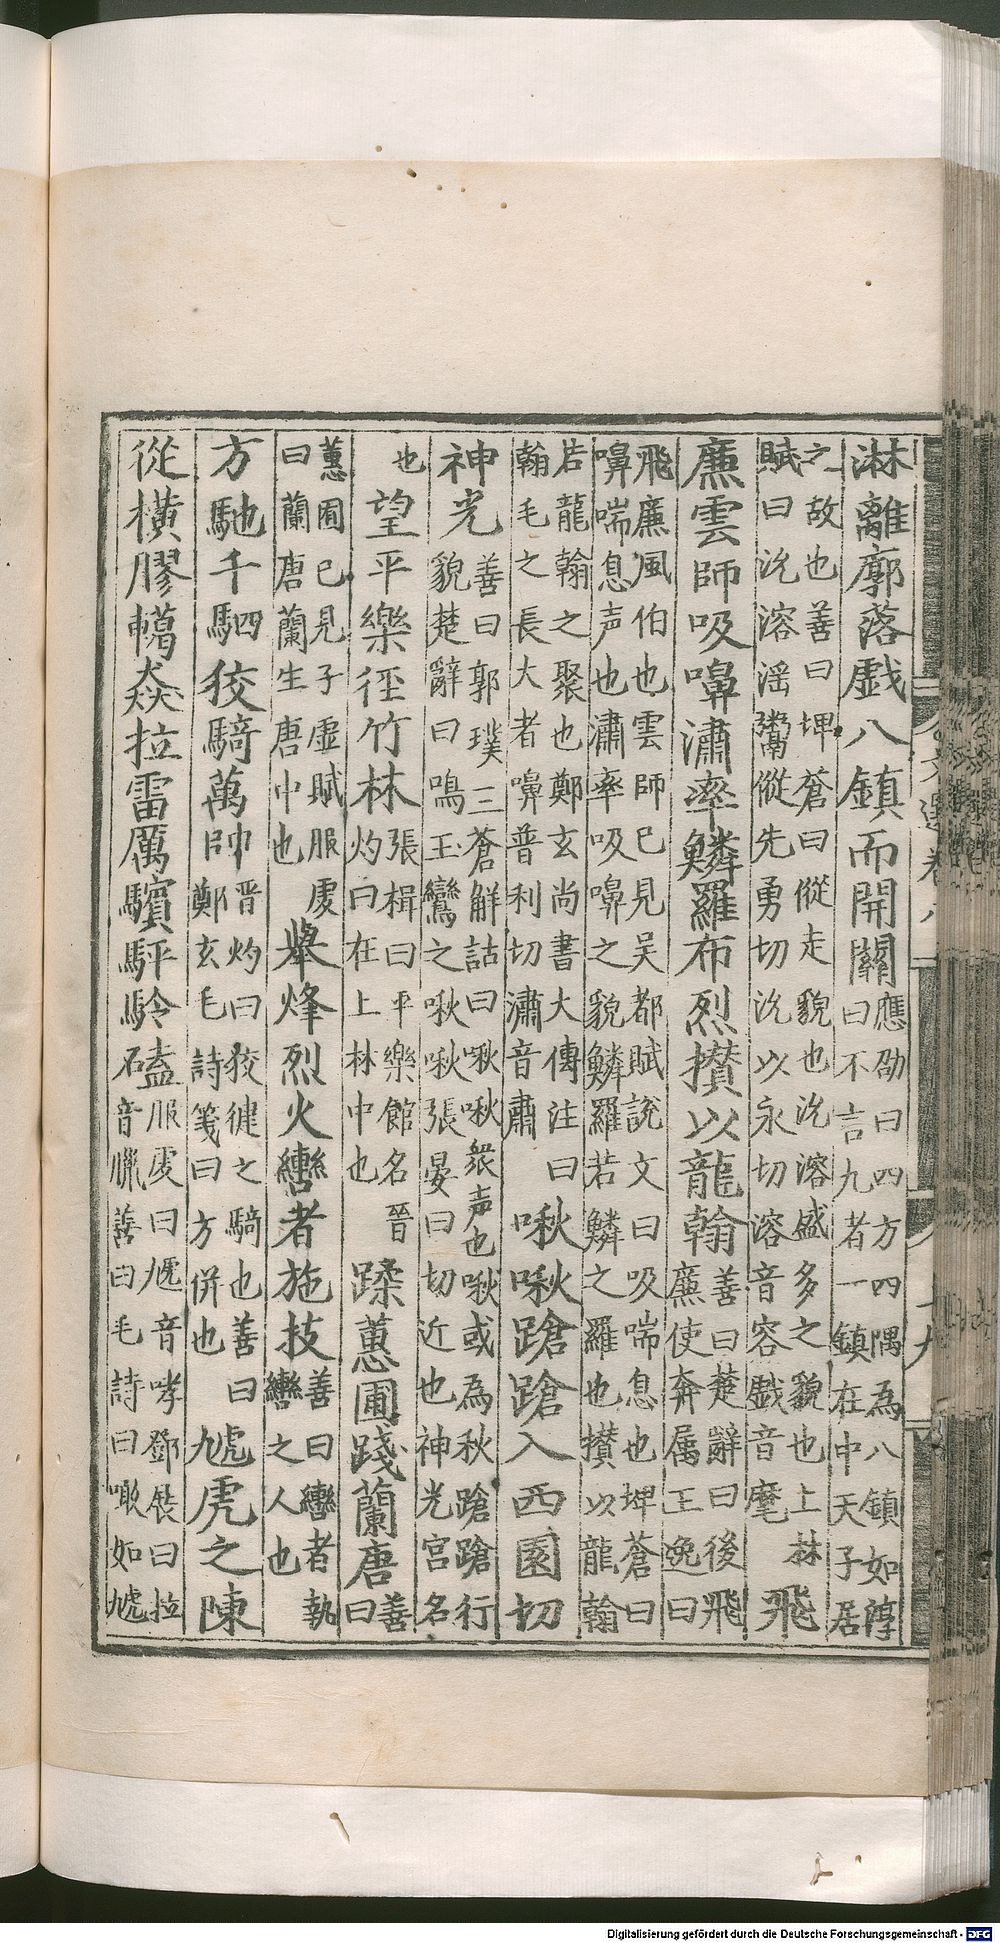 淋離廓落戲八鎮而開關應劭曰四方四隅為八鎮如淳曰不言九者一鎮在中天子居
之故也善曰埤蒼曰傱走貌也沇溶盛多之貌也上林賦曰沇溶滛鬻傱先勇切沇以永切溶音容戲音麾飛
廉雲師吸嚊瀟率鱗羅布烈攅以龍翰善曰楚辭曰後飛廉使奔属王逸曰
飛廉風伯也雲師已見吴都賦說文曰吸喘息也埤蒼曰嚊喘息声也瀟率吸嚊之貌鱗羅若鱗之羅也攅以龍翰
若龍翰之聚也鄭玄尚書大傳注曰翰毛之長大者嚊普利切瀟音肅啾啾蹌蹌入西園切
神光善曰郭璞三蒼解詁曰啾啾衆声也啾或為秋蹌蹌行貌楚辭曰鳴玉鸞之啾啾張晏曰切近也神光宫名
也望平樂徑竹林張楫曰平樂館名晉灼曰在上林中也蹂蕙圃踐蘭唐善曰
蕙圃已見子虚賦服虔曰蘭唐蘭生唐中也舉烽烈火轡者施技善曰轡者執轡之人也
方馳千駟狡騎萬帥晋灼曰狡健之騎也善曰鄭玄毛詩箋曰方併也虓虎之陳
從橫膠轕猋拉雷厲驞駍駖磕服虔曰虓音哮鄧展曰拉石音臘善曰毛詩曰噉如虓
文選卷八
十九
Digitalisierung gefördert durch die Deutsche Forschungsgemeinschaft - DFG